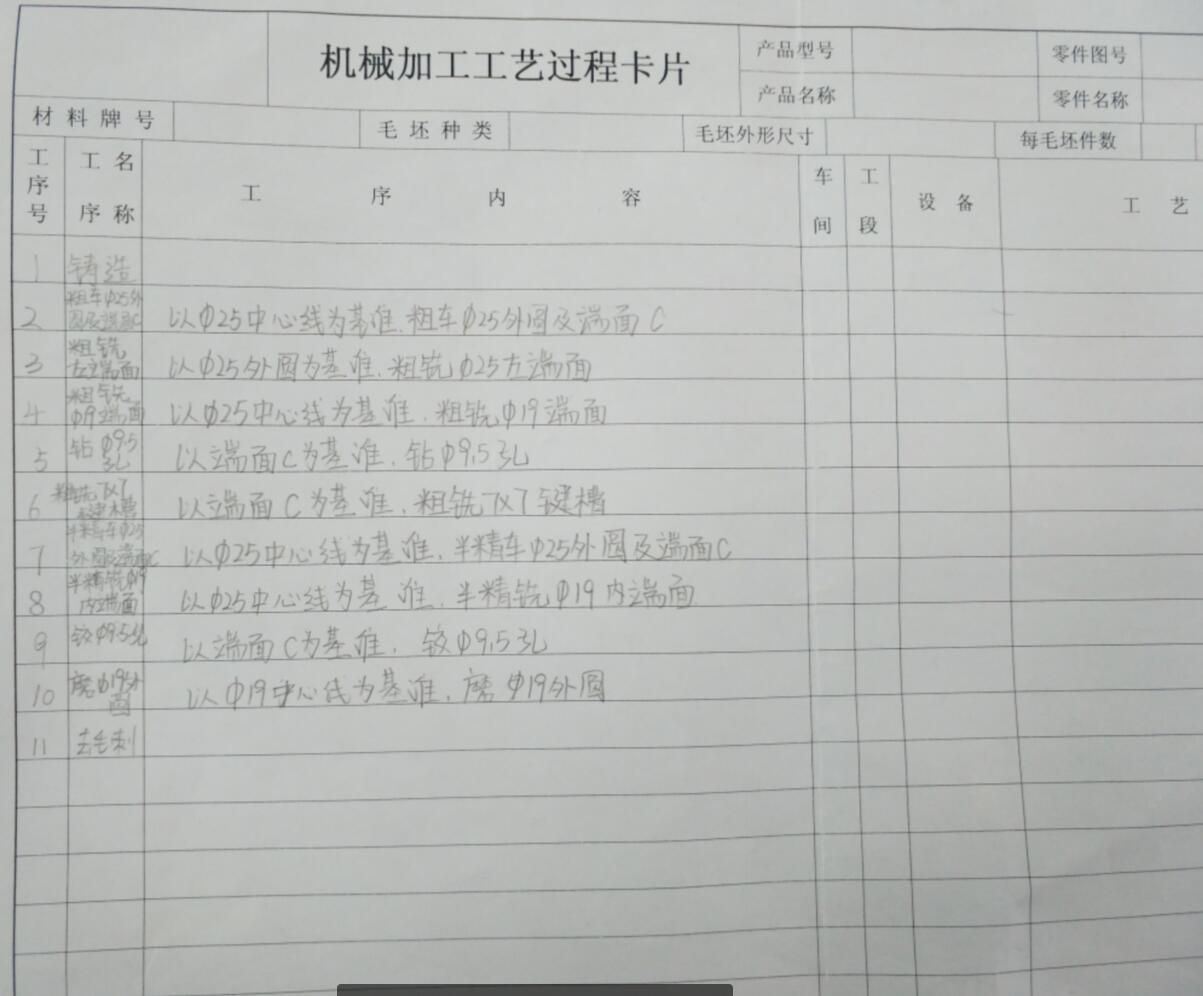 机械加工工艺过程卡片
产品型号
零件图号
产品名称
零件名称
材料牌号
毛坯种类
毛坯外形尺寸
每毛坯件数
工序号
工序名称
工序内容
车间
工段
设备
工艺
1 铸造
2 粗车Φ25外圆及端面C 以Φ25中心线为基准.粗车Φ25外圆及端面C
3 粗铣左端面 以Φ25外圆为基准.粗铣Φ25左端面
4 粗铣Φ19端面 以Φ25中心线为基准.粗铣Φ19端面
5 钻Φ9.5孔 以端面C为基准.钻Φ9.5孔
6 粗铣7×7键槽 以端面C为基准.粗铣7×7键槽
7 半精车Φ25外圆及端面C 以Φ25中心线为基准.半精车Φ25外圆及端面C
8 半精铣Φ19内端面 以Φ25中心线为基准.半精铣Φ19内端面
9 铰Φ9.5孔 以端面C为基准,铰Φ9.5孔
10 磨Φ19外圆 以Φ19中心线为基准.磨Φ19外圆
11 去毛刺